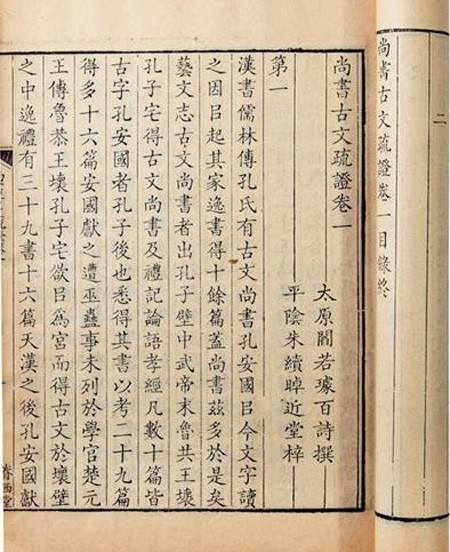 二
尚書古文疏證卷一目錄終
尚書古文疏證卷一
太原閻若璩百詩撰
平陰朱續晫近堂梓
第一
漢書儒林傳孔氏有古文尚書孔安國㠯今文字讀
之因㠯起其家逸書得十餘篇蓋尚書茲多於是矣
藝文志古文尚書者出孔子壁中武帝末魯共王壞
孔子宅得古文尚書及禮記論語孝經凡數十篇皆
古字孔安國者孔子後也悉得其書以考二十九篇
得多十六篇安國獻之遭巫蠱事未列於學官楚元
王傳魯恭王壞孔子宅欲㠯為宮而得古文於壞壁
之中逸禮有三十九書十六篇天漢之後孔安國獻
眷西堂